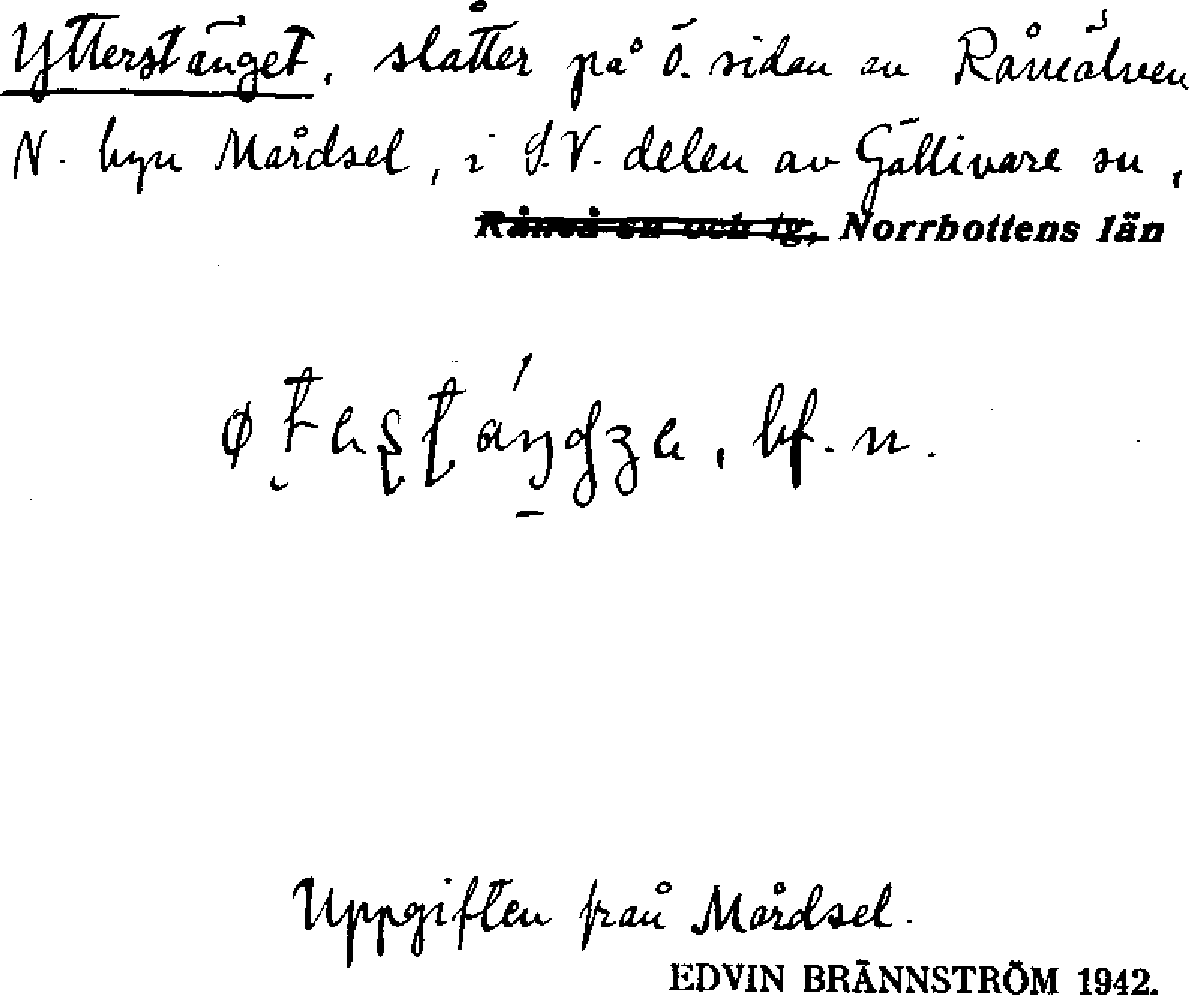 Ytterstänget, slåtter på ö. sidan av Råneälven
N. byn Mårdsel, i S.V. delen av Gällivare sn,
Råneå sn och tg, Norrbottens län
bf. n.
Uppgiften från Mårdsel.
EDVIN BRÄNNSTRÖM 1942.